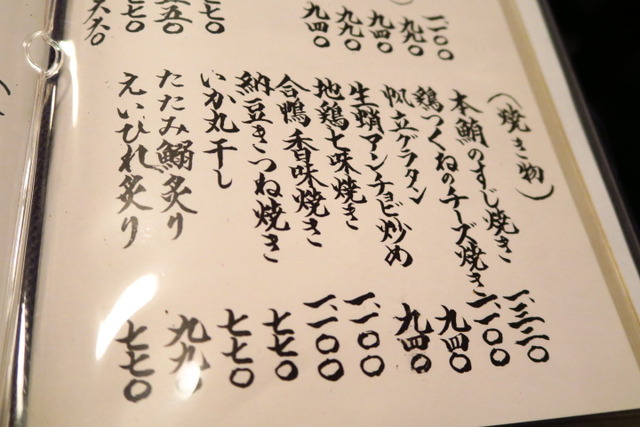 九四〇
九九〇
九四〇
(焼き物)
本鮪のすじ焼き 一、三二〇
鶏つくねのチーズ焼き 一、一〇〇
帆立グラタン 九四〇
生蛸アンチョビ炒め 九四〇
地鶏七味焼き 一、一〇〇
合鴨香味焼き 一、一〇〇
納豆きつね焼き 七七〇
いか丸干し 七七〇
たたみ鰯炙り 九九〇
えいひれ炙り 七七〇